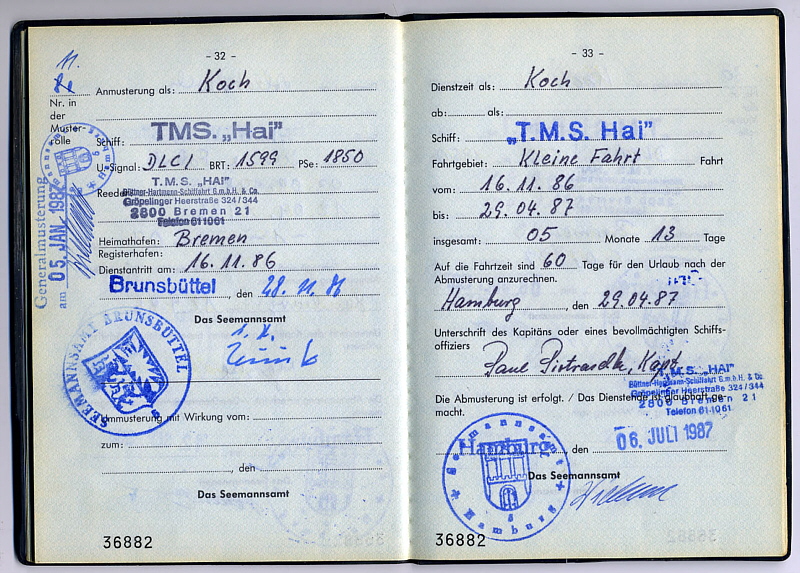 - 32 -
11.
Anmusterung als: Koch
Nr. in
der
Muster-
rolle
Schiff: TMS. „Hai"
U.-Signal: DLCI BRT: 1599 PSe: 1850
Reede
T.M.S. „HAI"
Büttner-Hartmann-Schiffahrt G.m.b.H. & Co.
Gröpelinger Heerstraße 324/344
2800 Bremen 21
Telefon 611061
Generalmusterung
am 05. JAN. 1987
Heimathafen: Bremen
Registerhafen:
Dienstantritt am: 16.11.86
Brunsbüttel, den 28.11.86
Das Seemannsamt
SEEMANNSAMT BRUNSBÜTTEL
Ummusterung mit Wirkung vom:
zum:
, den
Das Seemannsamt
36882
- 33 -
Dienstzeit als: Koch
ab: als:
Schiff: „T.M.S. Hai"
Fahrtgebiet: Kleine Fahrt Fahrt
vom: 16.11.86
bis: 29.04.87
insgesamt: 05 Monate 13 Tage
Auf die Fahrtzeit sind 60 Tage für den Urlaub nach der
Abmusterung anzurechnen.
Hamburg, den 29.04.87
Unterschrift des Kapitäns oder eines bevollmächtigten Schiffs-
offiziers
Kapt.
T.M.S. „HAI"
Büttner-Hartmann-Schiffahrt G.m.b.H. & Co.
Gröpelinger Heerstraße 324/344
2800 Bremen 21
Telefon 611061
Die Abmusterung ist erfolgt. / Das Dienstende ist glaubhaft ge-
macht.
Hamburg, den 06. JULI 1987
Seemannsamt Hamburg
Das Seemannsamt
36882